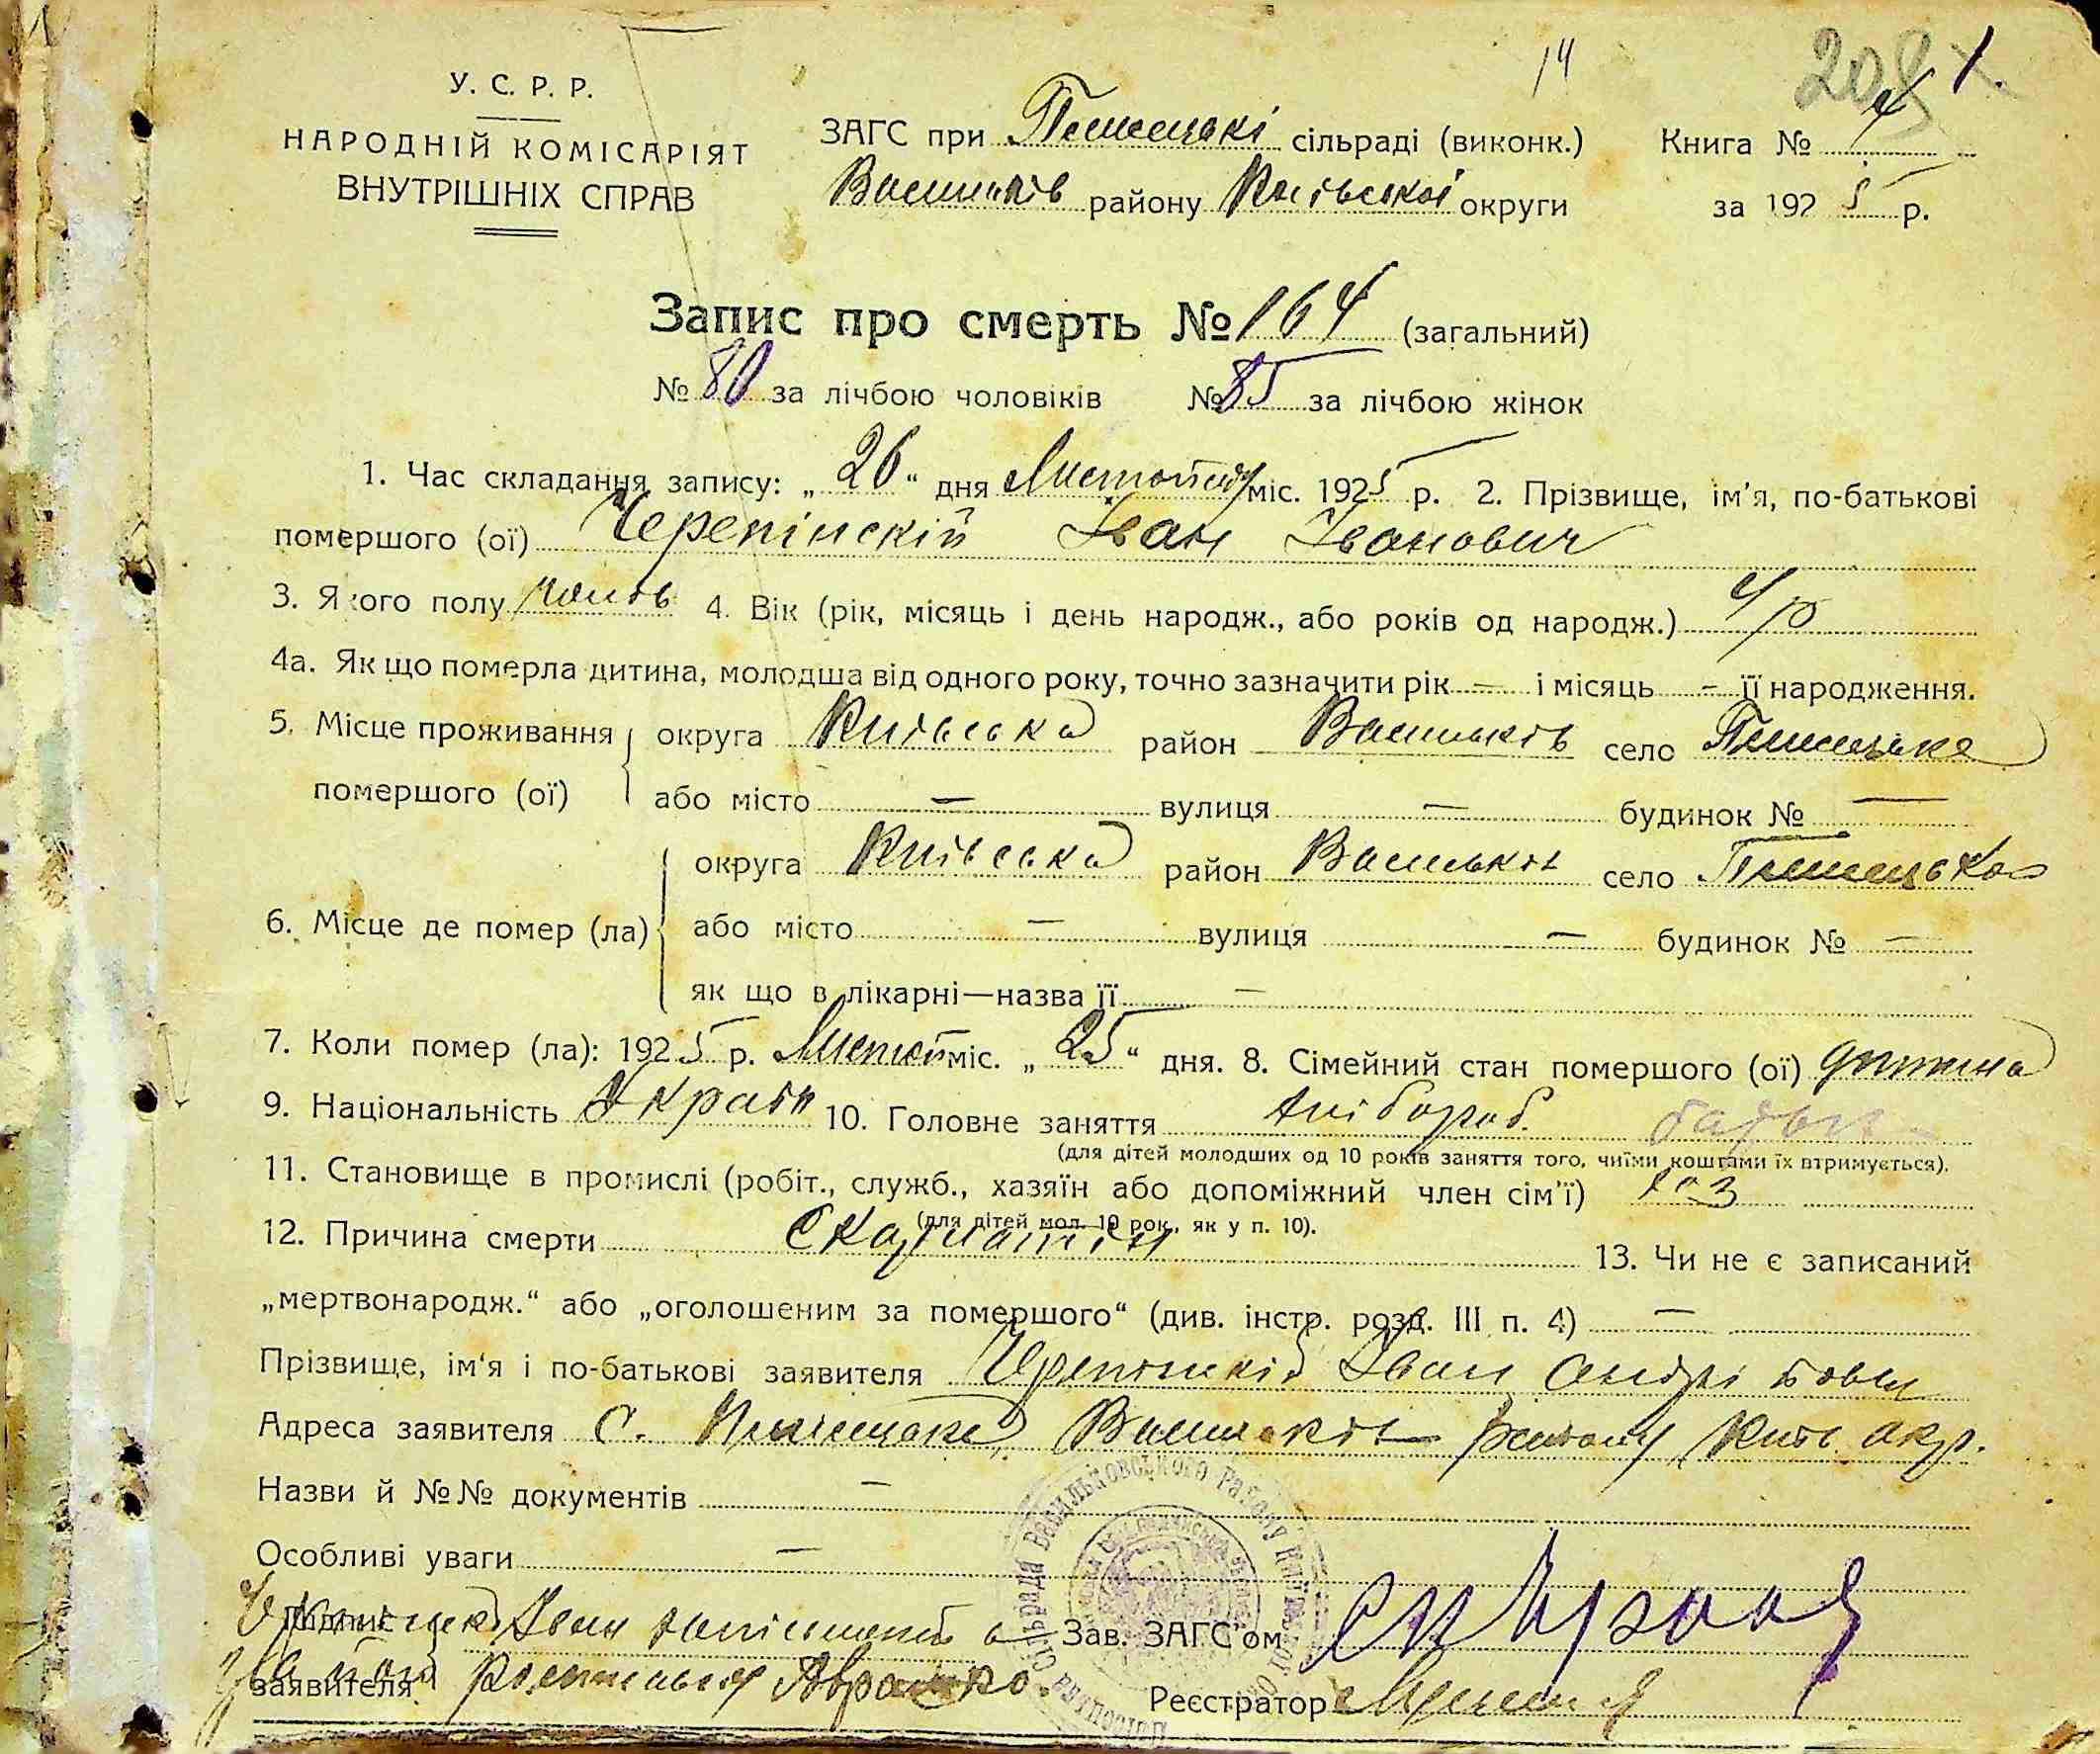 14
208
1.
У. С. Р. Р.
НАРОДНІЙ КОМІСАРІЯТ
ВНУТРІШНІХ СПРАВ
ЗАГС при сільраді (виконк.)
Васильків району Київської округи
Книга №
за 1925 р.
Запис про смерть № 164 (загальний)
№ 80 за лічбою чоловіків № 85 за лічбою жінок
1. Час складання запису: „26“ дня Листопад міс. 1925 р. 2. Прізвище, ім'я, по-батькові
помершого (ої) Черепінскій Іван Іванович
3. Якого полу 4. Вік (рік, місяць і день народж., або років од народж.) 4 р
4а. Як що померла дитина, молодша від одного року, точно зазначити рік – і місяць – її народження.
5. Місце проживання округа Київська район Васильків село
помершого (ої) або місто – вулиця – будинок № –
округа Київська район Васильків село
6. Місце де помер (ла) або місто – вулиця – будинок № –
як що в лікарні—назва її –
7. Коли помер (ла): 1925 р. Листоп міс. „25“ дня. 8. Сімейний стан помершого (ої) дитина
9. Національність Україн 10. Головне заняття хлібороб.
(для дітей молодших од 10 років заняття того, чиїми коштами їх втримується).
11. Становище в промислі (робіт., служб., хазяїн або допоміжний член сім'ї) хоз
(для дітей мол. 10 рок., як у п. 10).
12. Причина смерти Скарлатін 13. Чи не є записаний
„мертвонародж.“ або „оголошеним за помершого“ (див. інстр. розд. III п. 4) –
Прізвище, ім'я і по-батькові заявителя Черепінскій Іван Андрієвич
Адреса заявителя С. Васильків району Київ. окр.
Назви й №№ документів –
Особливі уваги –
Підпис Іван
заявителя
Зав. ЗАГС'ом
Реєстратор